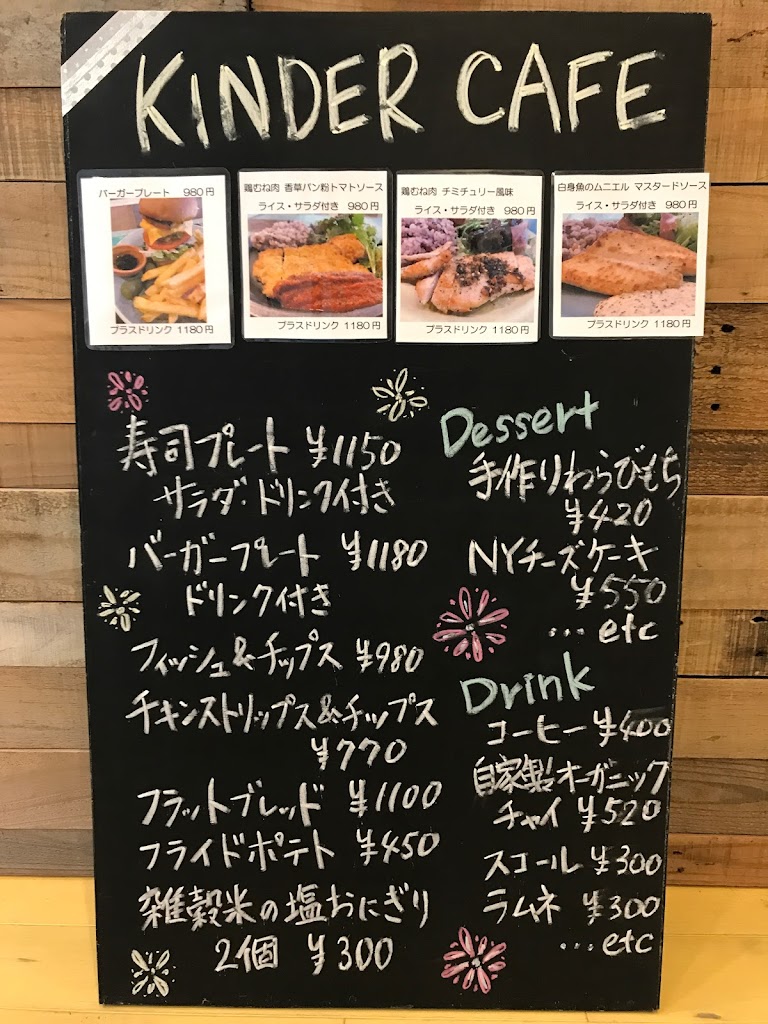 KINDER CAFE
バーガープレート 980円
プラスドリンク 1180円
鶏むね肉 香草パン粉トマトソース
ライス・サラダ付き 980円
プラスドリンク 1180円
鶏むね肉 チミチュリー風味
ライス・サラダ付き 980円
プラスドリンク 1180円
白身魚のムニエル マスタードソース
ライス・サラダ付き 980円
プラスドリンク 1180円
寿司プレート ¥1150
サラダ・ドリンク付き
バーガープレート ¥1180
ドリンク付き
フィッシュ&チップス ¥980
チキンストリップス&チップス
¥770
フラットブレッド ¥1100
フライドポテト ¥450
雑穀米の塩おにぎり
2個 ¥300
Dessert
手作りわらびもち
¥420
NYチーズケーキ
¥550
...etc
Drink
コーヒー ¥400
自家製オーガニック
チャイ ¥520
スコール ¥300
ラムネ ¥300
...etc